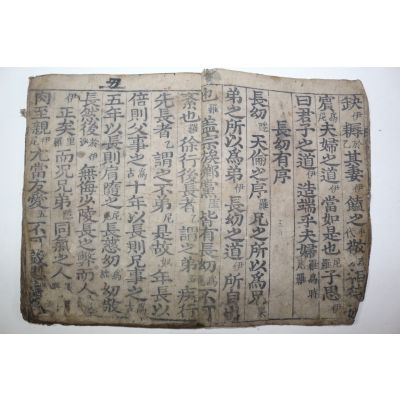 缺伊耨於其妻伊饁之代敬
賓尼夫婦之道伊當如是也羅子思伊
曰君子之道伊造端乎夫婦尼羅
長幼有序
長幼天倫之序羅兄之所以爲兄
弟之所以爲弟長幼之道伊所自出
也羅盖宗族鄕黨皆有長幼不可
紊也羅徐行後長者乙謂之弟疾行
先長者乙謂之不弟尼是故年長以
倍則父事之古十年以長則兄事之古
五年以長則肩隨之尼長慈幼幼敬
長然後伊無侮少陵長之弊而人
正矣里而况兄弟同氣之人伊
肉至親尼尤當友愛五不可